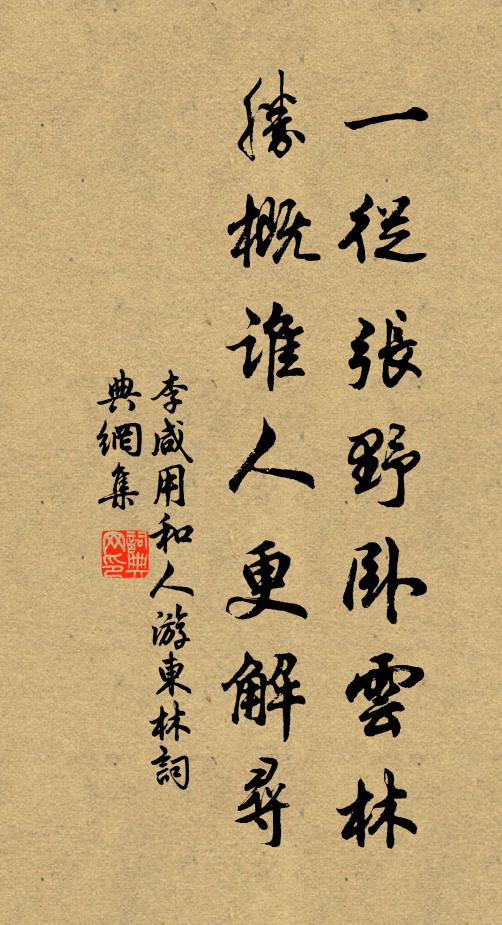 一從張野臥雲林
勝概誰人更解尋
李咸用和人游東林詞
典網集
詞典
网印